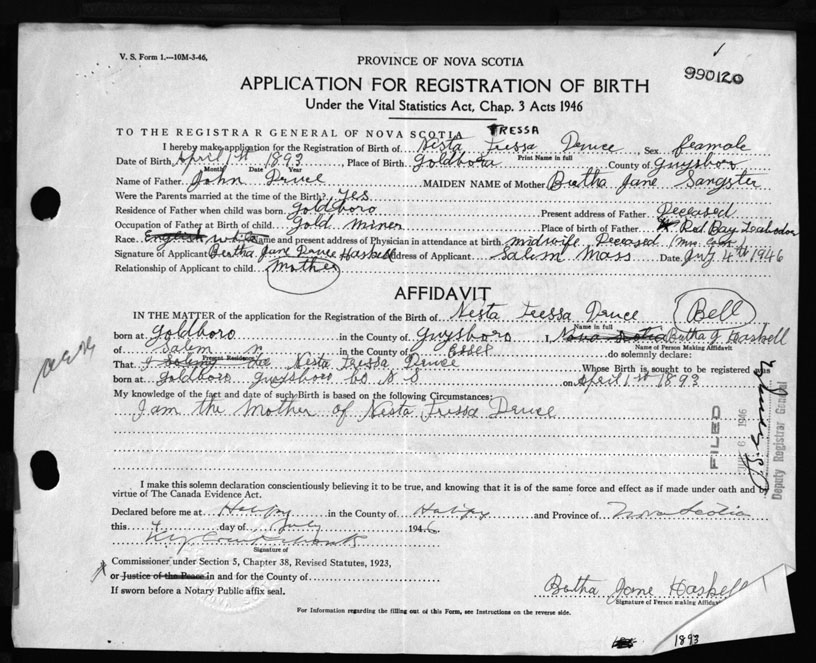 V. S. Form 1.—10M-3-46.
PROVINCE OF NOVA SCOTIA
990120
APPLICATION FOR REGISTRATION OF BIRTH
Under the Vital Statistics Act, Chap. 3 Acts 1946
TO THE REGISTRAR GENERAL OF NOVA SCOTIA TRESSA
I hereby make application for the Registration of Birth of Nesta Tressa Druce, Sex feamale
Print Name in full
Date of Birth, April 1st 1893, Place of Birth Goldboro County of Guysboro
Month Date Year
Name of Father John Druce MAIDEN NAME of Mother Bertha Jane Sangster
Were the Parents married at the time of the Birth? yes
Residence of Father when child was born Goldboro Present address of Father Deceased
Occupation of Father at Birth of child Gold miner Place of birth of Father Red Bay Leabodor
Race English white Name and present address of Physician in attendance at birth midwife, Deceased (Mrs.
Signature of Applicant Bertha Jane Druce Haskell Address of Applicant Salem Mass Date July 4th 1946
Relationship of Applicant to child Mother
AFFIDAVIT
IN THE MATTER of the application for the Registration of the Birth of Nesta Tressa Druce (Bell)
Name in full
born at Goldboro in the County of Guysboro I, Nova Scotia Bertha J Haskell
Name of Person Making Affidavit
of Salem in the County of Essex do solemnly declare:
Present Residence
That Nesta Tressa Druce Whose Birth is sought to be registered was
born at Goldboro Guysboro Co N S on April 1st 1893
My knowledge of the fact and date of such Birth is based on the following Circumstances:
I am the Mother of Nesta Tressa Druce
FILED
1946
Deputy Registrar General
I make this solemn declaration conscientiously believing it to be true, and knowing that it is of the same force and effect as if made under oath and by
virtue of The Canada Evidence Act.
Declared before me at Halifax in the County of Halifax and Province of Nova Scotia
this 4 day of July 1946.
Signature of
Commissioner under Section 5, Chapter 38, Revised Statutes, 1923,
or Justice of the Peace in and for the County of
If sworn before a Notary Public affix seal.
Bertha Jane Haskell
Signature of Person making Affidavit
For Information regarding the filling out of this Form, see Instructions on the reverse side.
1893